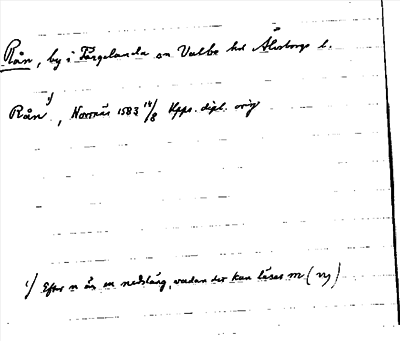 Rån, by i Färgelanda sn Valbo hd Älvsborgs l.
Rån 1), Norrnäs 1583 14/8 Kpps. dipl. orig
1) Efter n är en nedsläng, vadan det kan läsas m (ny)